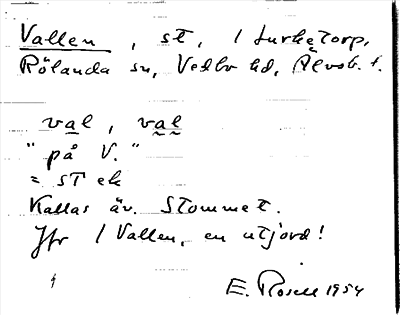 Vallen, st, 1 Lurketorp,
Rölanda sn, Vedbo hd, Älvsb. l.
val, val
"på V."
= st ek
Kallas äv. Stommet.
Jfr 1 Vallen, en utjord!
E. Rosell 1954